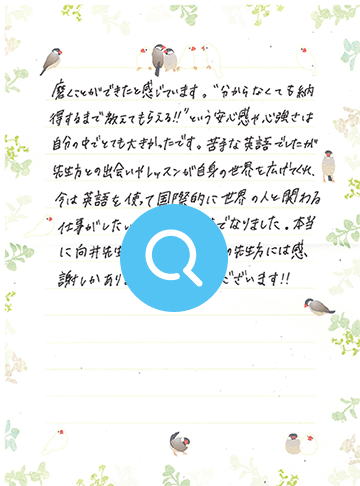 磨くことができたと感じています。"分からなくても納
得するまで教えてもらえる!!"という安心感や心強さは
自分の中でとても大きかったです。苦手な英語でしたが
先生方との出会いやレッスンが自身の世界を広げてくれ、
今は英語を使って国際的に世界の人と関わる
仕事がしたい までなりました。本当
に向井先生 の先生方には感
謝しかあり ございます!!